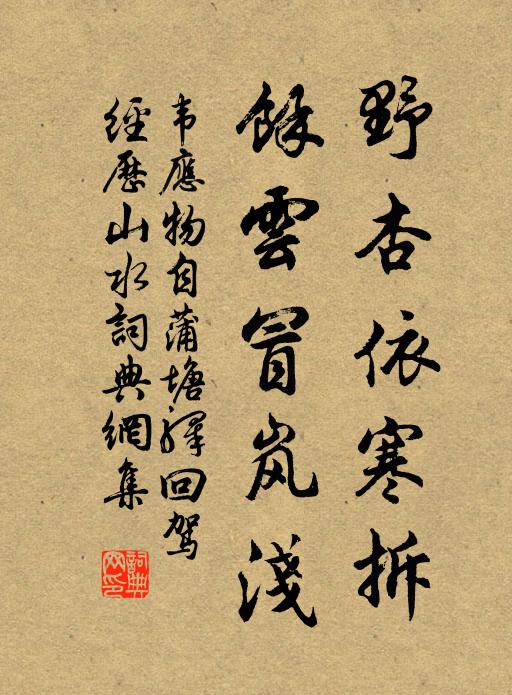 野杏依寒拆
餘雲冒岚淺
韦應物自蒲塘驛回駕
經歷山水詞典網集
詞典网印